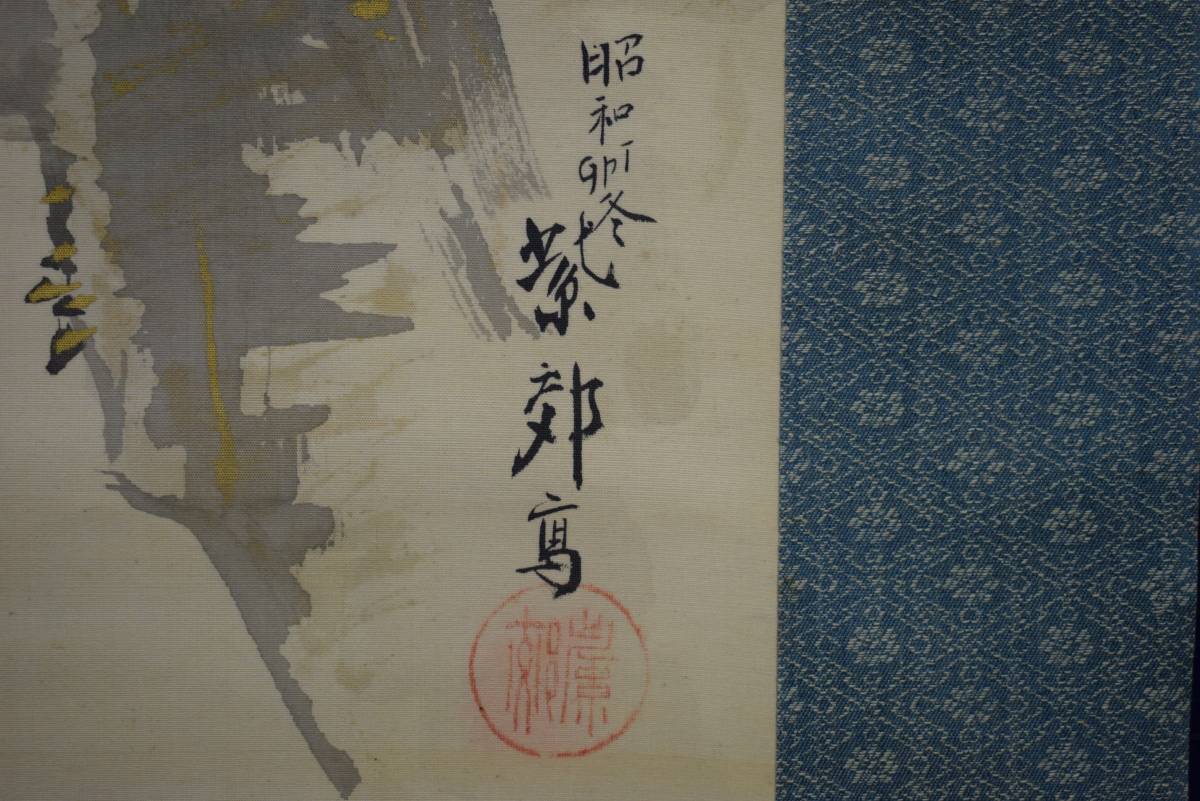 昭和丁卯冬
紫郊寫
紫郊